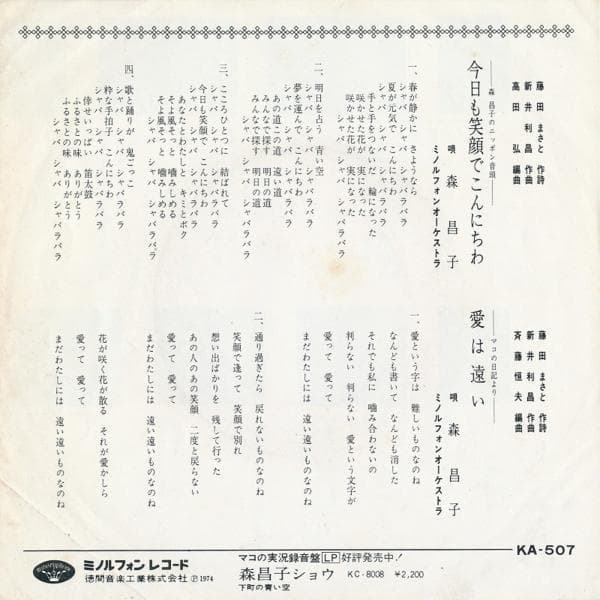 藤田まさと 作詩
新井利昌 作曲
高田弘 編曲
今日も笑顔でこんにちわ
――森 昌子のニッポン音頭――
唄 森 昌子
ミノルフォンオーケストラ
一、春が静かに さようなら
シャバ シャバ シャバラバラ
夏が元気で こんにちわ
シャバ シャバ シャバラバラ
手と手をつないだ 輪になった
咲かせた花が 実になった
咲かせた花が 実になった
シャバラバ シャバ シャバラバラ
二、明日を占う 青い空
シャバ シャバ シャバラバラ
夢を運んで こんにちわ
シャバ シャバ シャバラバラ
あの道この道 遠い道
みんなで探す 明日の道
みんなで探す 明日の道
シャバラバ シャバ シャバラバラ
三、こころひとつに 結ばれて
シャバ シャバ シャバラバラ
今日も笑顔で こんにちわ
シャバ シャバ シャバラバラ
あなたとわたし キミとボク
そよ風そっと 噛みしめる
そよ風そっと 噛みしめる
シャバラバ シャバ シャバラバラ
四、歌と踊りが 鬼ごっこ
シャバ シャバ シャバラバラ
粋な手拍子 こんにちわ
シャバ シャバ シャバラバラ
倖せいっぱい 笛太鼓
ふるさとの味 ありがとう
ふるさとの味 ありがとう
シャバラバ シャバ シャバラバラ
藤田まさと 作詩
新井利昌 作曲
斉藤恒夫 編曲
愛は遠い
――マコの日記より――
唄 森 昌子
ミノルフォンオーケストラ
一、愛という字は 難しいものなのね
なんども書いて なんども消した
それでも私に 噛み合わないの
判らない 判らない 愛という文字が
愛って 愛って
まだわたしには 遠い遠いものなのね
二、通り過ぎたら 戻れないものなのね
笑顔で逢って 笑顔で別れ
想い出ばかりを 残して行った
あの人のあの笑顔 二度と戻らない
愛って 愛って
まだわたしには 遠い遠いものなのね
花が咲く花が散る それが愛かしら
愛って 愛って
まだわたしには 遠い遠いものなのね
KA-507
ミノルフォンレコード
徳間音楽工業株式会社 Ⓟ1974
マコの実況録音盤LP好評発売中!
森昌子ショウ KC-8008 ¥2,200
下町の青い空